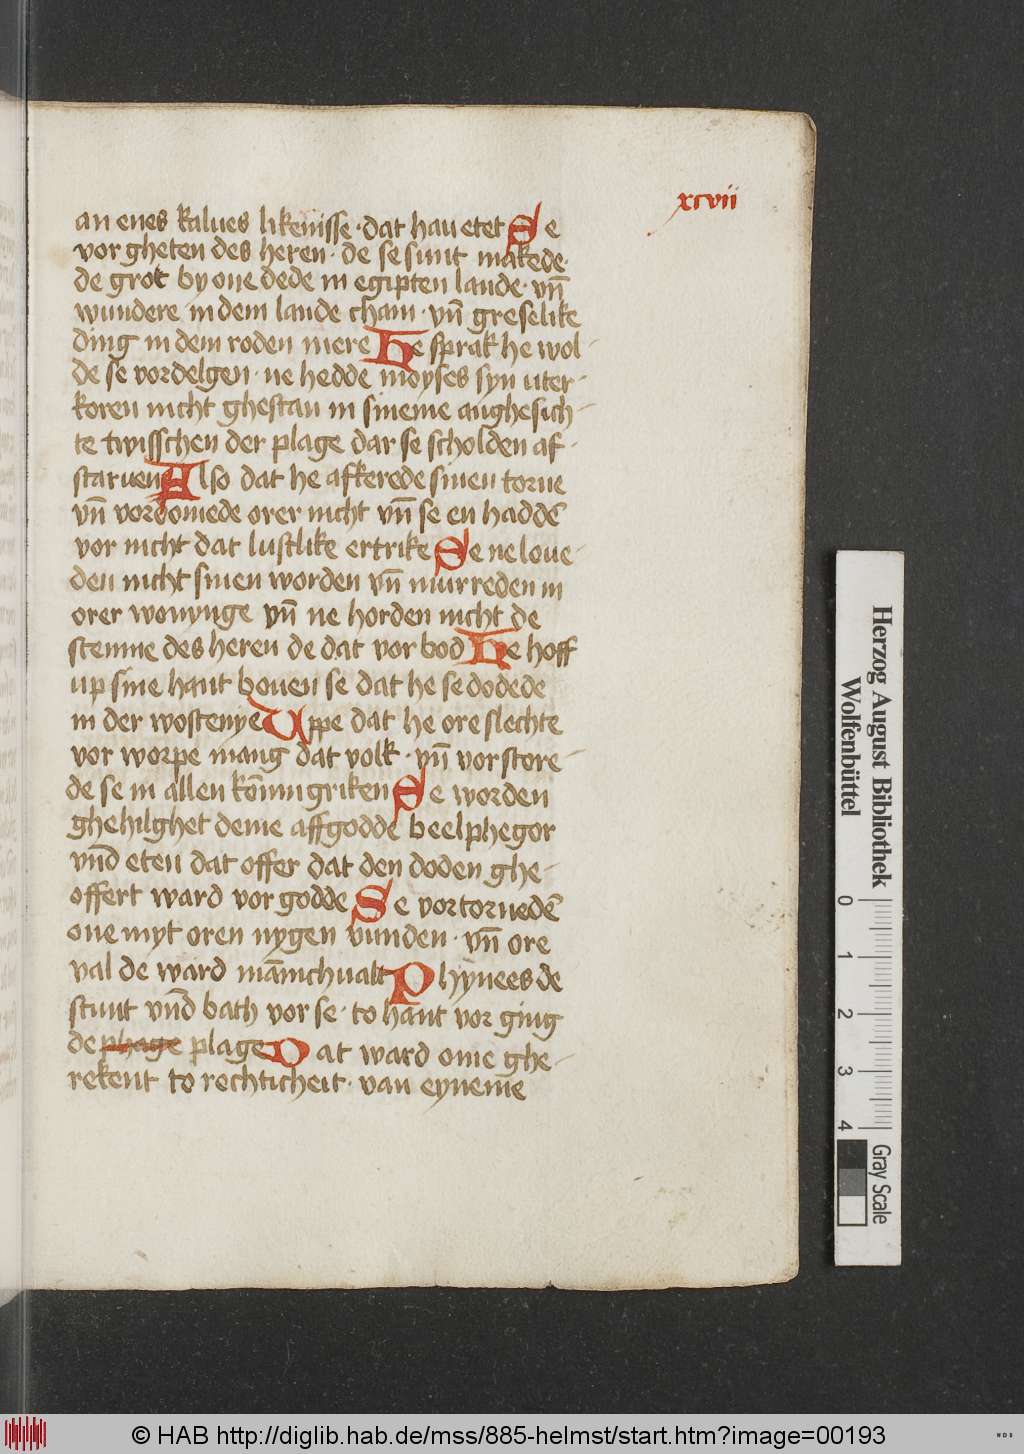 xcvii
an enes kalues likenisse · dat hau etet Se
vor gheten des heren · de se sunt makede ·
de grot by one dede in egipten lande · vn̄
wundere in dem lande cham · vn̄ greselike
ding in dem roden mere he sprak he wol-
de se vordelgen · ne hedde moyses syn uter-
koren nicht ghestan in sineme anghesich-
te twisschen der plage dar se scholden af-
staruen Also dat he afkerede sinen torne
vn̄ vordomede orer nicht vn̄ se en haddē
vor nicht dat lustlike ertrike Se ne loue-
den nicht sinen worden vn̄ murreden in
orer wonynge vn̄ ne horden nicht de
stemne des heren de dat vor bod he hoff
up sine hant bouen se dat he se dodede
in der wostenye Uppe dat he ore slechte
vor worpe mang dat volk · vn̄ vorstore-
de se in allen kōningriken Se worden
ghehilghet deme affgodde beelphegor
vnd eten dat offer dat den doden ghe-
offert ward vor godde Se vortornedē
one myt oren nygen vunden · vn̄ ore
val de ward mānichualt Phynees de
stunt vnd bath vor se · to hant vor ging
de phage plage Dat ward ome ghe-
rekent to rechticheit · van eyneme
Herzog August Bibliothek
Wolfenbüttel
0 1 2 3 4
Gray Scale
© HAB http://diglib.hab.de/mss/885-helmst/start.htm?image=00193